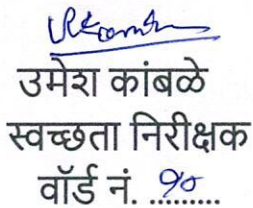 उमेश कांबळे
स्वच्छता निरीक्षक
वॉर्ड नं. १०